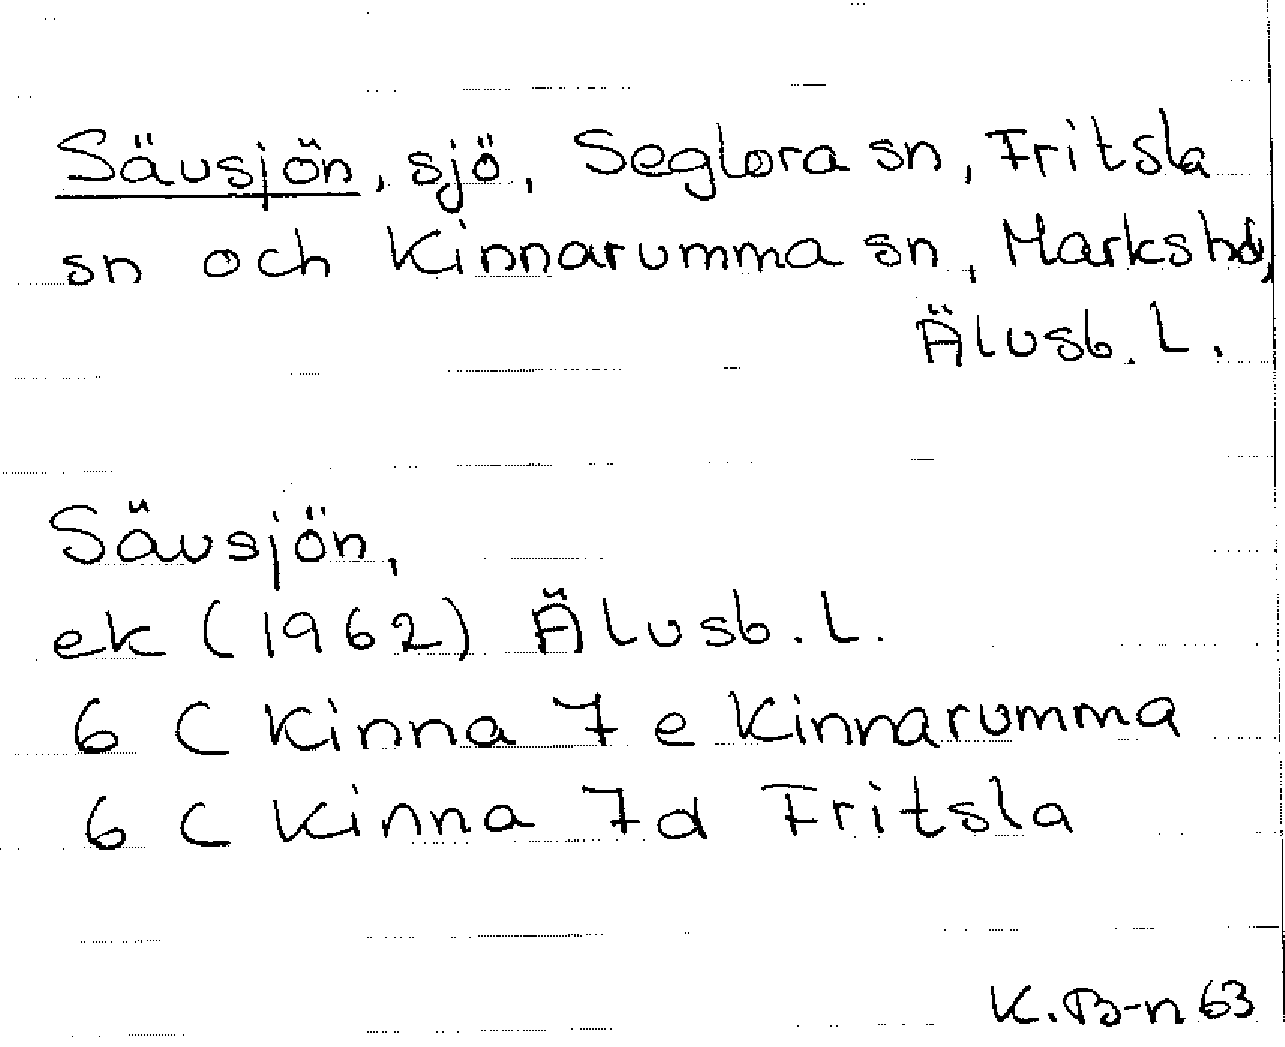 Sävsjön, sjö, Seglora sn, Fritsla
sn och Kinnarumma sn, Marks hd,
Älvsb. L.
Sävsjön,
ek (1962) Älvsb. L.
6 C Kinna 7 e Kinnarumma
6 C Kinna 7d Fritsla
K.B-n 63